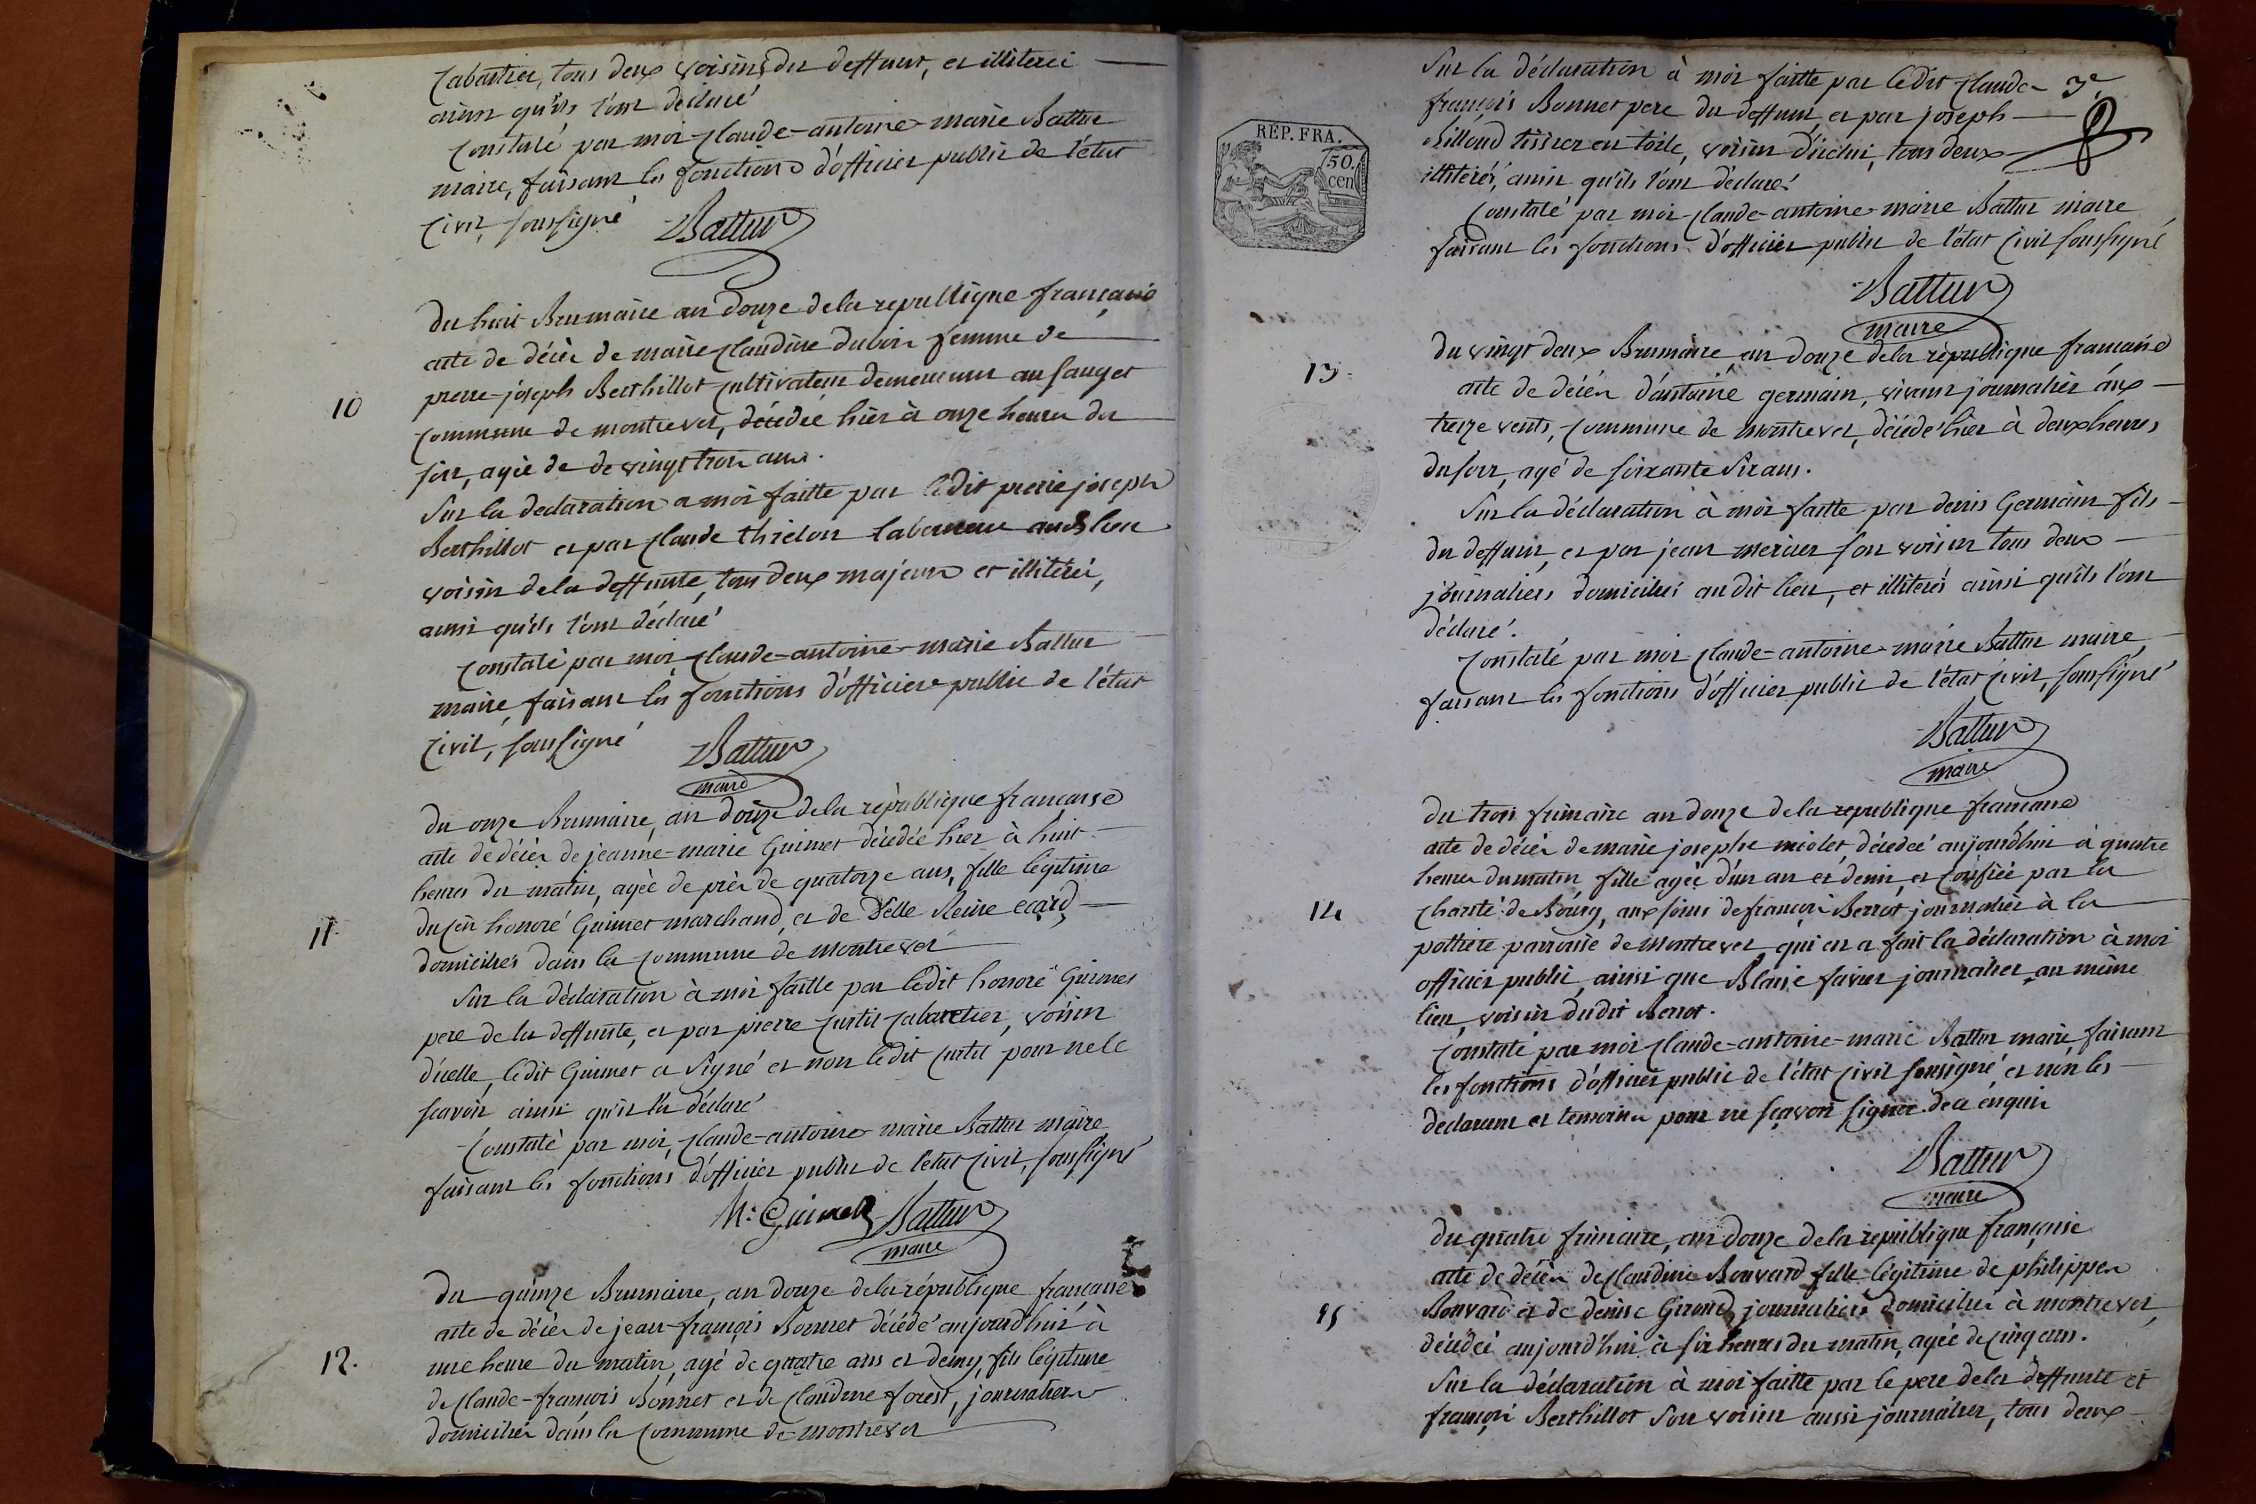 Cabartier, tous deux voisins du deffunt, et illiterés
ainsi qu'ils l'ont déclaré
Constaté par moi Claude-antoine-marie Battur
maire, faisant les fonctions d'officier public de l'état
Civil, soussigné Battur
du huit Brumaire an douze de la republique française
acte de décès de marie Claudine Dubois femme de
10
pierre-joseph Berthillot Cultivateur demeurant au sauget
Commune de montrevel, décédée hièr à onze heures du
soir, agée de de vingt trois ans.
Sur la declaration a moi faitte par ledit pierre joseph
Berthillot et par Claude thiélon laboureur au dit lieu
voisin de la deffunte, tous deux majeurs et illitérés,
ainsi qu'ils l'ont déclaré
Constaté par moi Claude-antoine-marie Battur
maire, faisant les fonctions d'officier public de l'état
Civil, soussigné Battur
maire
du onze Brumaire, an douze de la république francaise
acte de décès de jeanne-marie Guimet décédée hier à huit
heures du matin, agée de près de quatorze ans, fille légitime
11
du Cen honoré Guimet marchand, et de delle Reine ecard,
domiciliés dans la Commune de montrevel
Sur la déclaration à moi faitte par ledit honoré Guimet
pere de la deffunte, et par pierre Curtil Cabartier, voisin
d'icelle, ledit Guimet a signé et non ledit Curtil pour ne le
scavoir ainsi qu'il l'a déclaré
Constaté par moi, Claude-antoine-marie Battur maire
faisant les fonctions d'officier public de l'état Civil, soussigné
h: Guimet Battur
maire
du quinze Brumaire, an douze de la république française
acte de décès de jean-françois Bonnet décédé aujourd'hui à
12.
une heure du matin, agé de quatre ans et demy, fils légitime
de Claude-françois Bonnet et de Claudine forest, journaliers
domiciliés dans la Commune de montrevel
Sur la déclaration à moi faitte par ledit Claude-
3e
françois Bonnet pere du deffunt, et par joseph
billoud tissier en toile, voisin d'icelui, tous deux
illitérés, ainsi qu'ils l'ont déclaré
REP. FRA.
50
cen
Constaté par moi Claude-antoine-marie Battur maire
faisant les fonctions d'officier public de l'état Civil soussigné
Battur
maire
du vingt deux Brumaire an douze de la république française
13.
acte de décès d'antoine germain, vivant journalier aux
treize vents, Commune de montrevel, décédé hièr à deux heures
du soir, agé de soixante six ans.
Sur la déclaration à moi faitte par denis Germain fils
du deffunt, et par jean mercier son voisin tous deux
journaliers domiciliés au dit lieu, et illiterés ainsi qu'ils l'ont
déclaré.
Constaté par moi Claude-antoine-marie Battur maire,
faisant les fonctions d'officier public de l'état Civil, soussigné
Battur
maire
du trois frimaire an douze de la republique francaise
acte de décès de marie josephe miolet décédée aujourdhui à quatre
heures du matin fille agée d'un an et demi, et Confiée par la
14
Charité de Bourg, aux soins de françois Berrot journalier à la
pottiere parroisse de montrevel qui en a fait la déclaration à moi
officier public, ainsi que Blaise favier journalier au même
lieu, voisin du dit Berrot.
Constaté par moi Claude-antoine-marie Battur maire faisant
les fonctions d'officier public de l'état Civil soussigné, et non les
declarant et temoins pour ne sçavoir signer de ce enquis
Battur
maire
du quatre frimaire, an douze de la république française
acte de décès de Claudine Bouvard fille légitime de philippe
15
Bouvard et de denise Girond, journaliers domiciliés à montrevel,
décédée aujourd'hui à six heures du matin, agée de cinq ans.
Sur la déclaration à moi faitte par le pere de la deffunte et
françois Berthillot son voisin aussi journalier, tous deux